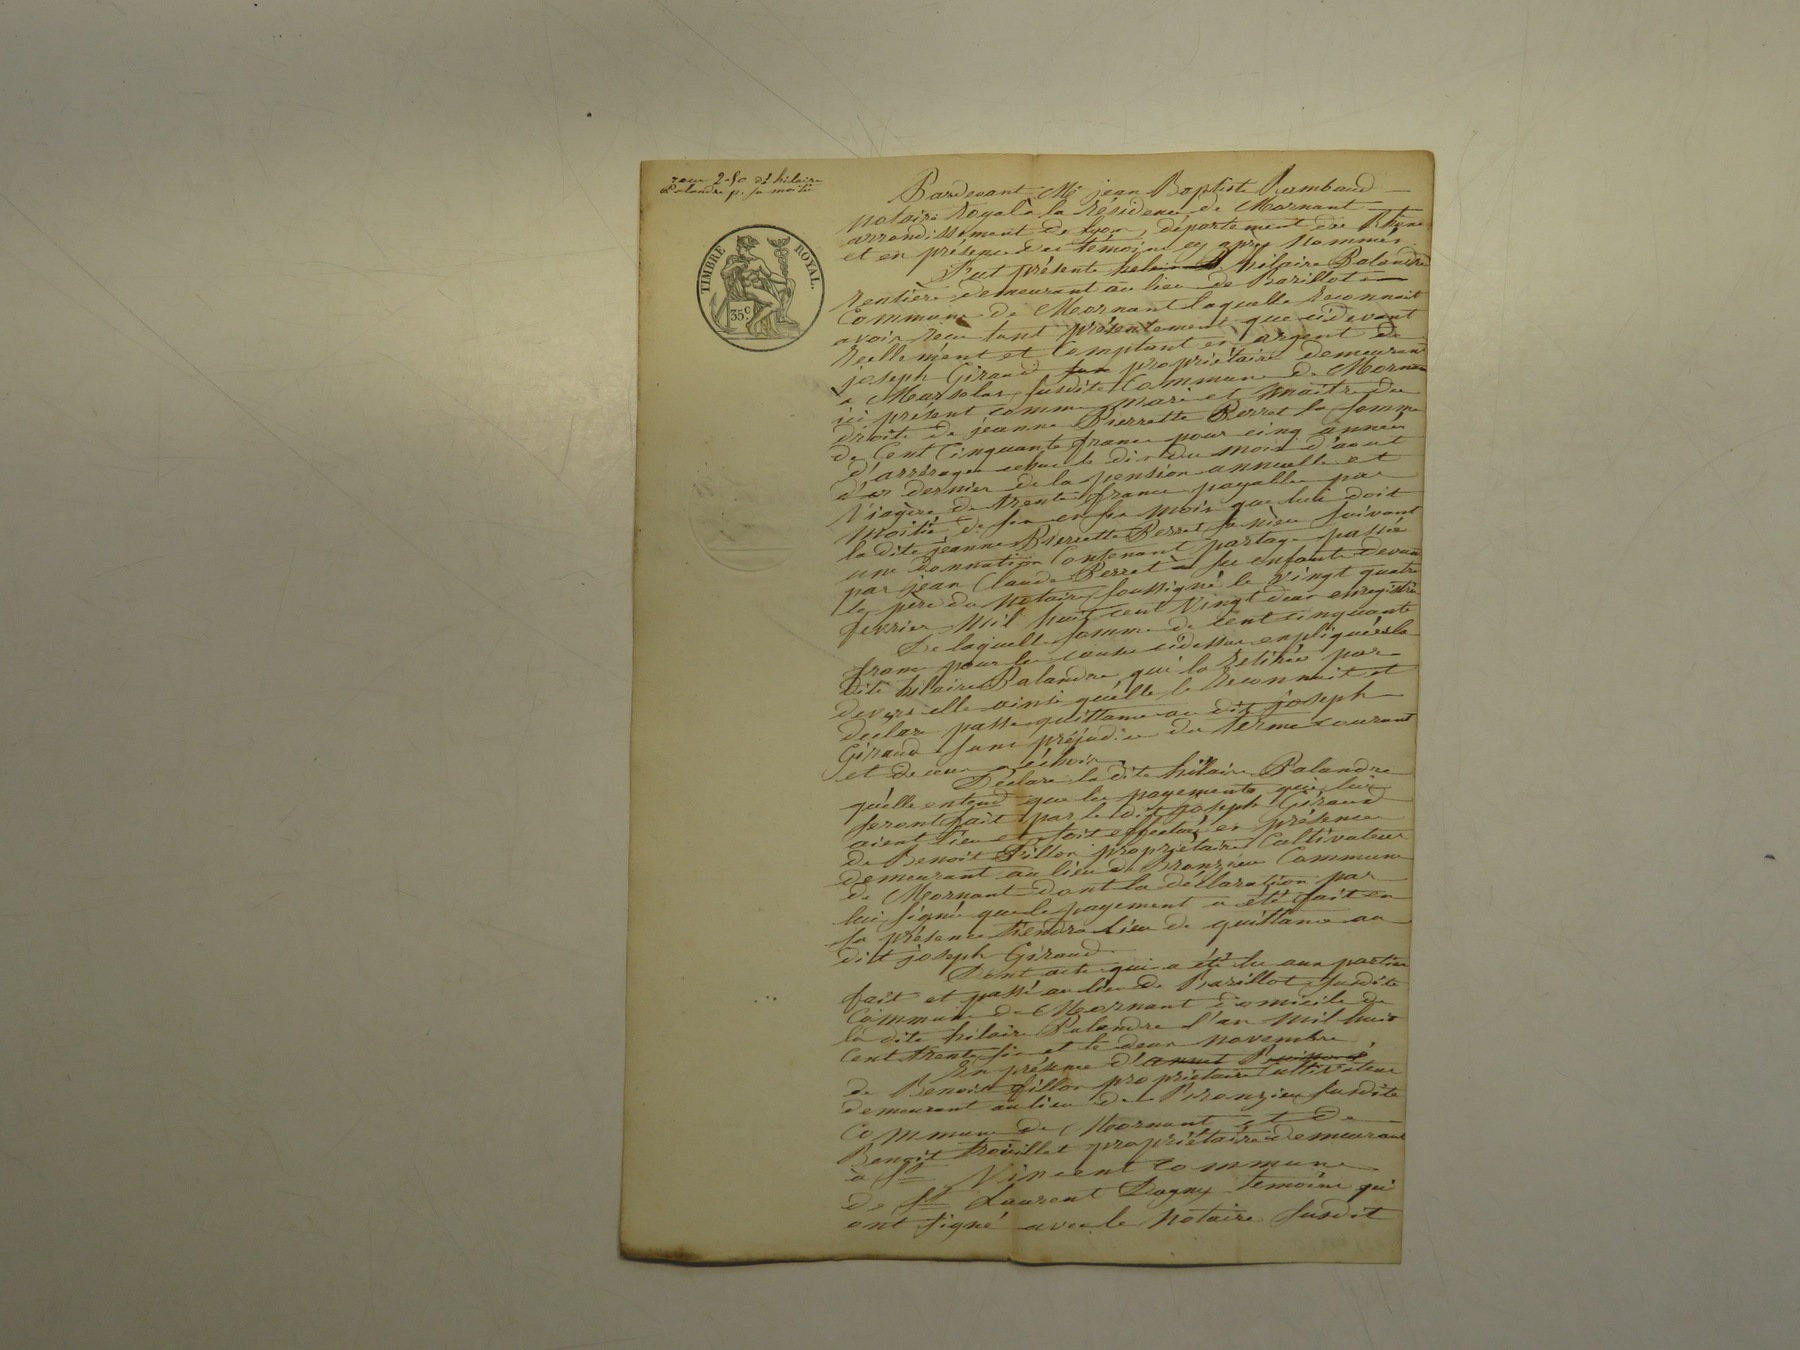 reçu 2-50 de hilaire
Palandre p. sa moitié
TIMBRE ROYAL.
35 c.
Pardevant Me jean Baptiste Rambaud
notaire Royal à la Résidence de Mornant
arrondissement de Lyon, département du Rhône
et en présence des témoins cy après nommés
Fut présente hilaire Palandre
Rentière demeurant au lieu de Barillot
Commune de Mornant laquelle Reconnait
avoir Reçu tant présentement que cidevant
Reellement et Comptant en argent de
joseph Giraud propriétaire demeurant
à Marsolas susdite Commune de Mornant
ici présent comme mari et maitre des
droits de jeanne Pierrette Perret la somme
de Cent Cinquante francs pour cinq années
d'arrérages echue le dix du mois d'aout
dernier de la pension annuelle et
Viagère de trente francs payable par
moitié de six en six mois que lui doit
la dite jeanne Pierrette Perret sa nièce suivant
une donnation Contenant partage passée
par jean Claude Perret à ses enfants devant
le père du Notaire soussigné le vingt quatre
fevrier Mil huit cent vingt deux enregistré
De laquelle somme de cent cinquante
francs pour les causes cidessus expliquées la
dite hilaire Palandre qui la Retirée par
devers elle ainsi qu'elle le Reconnait et
declare passe quittance au dit joseph
Giraud sans préjudice du terme courant
et de ceux a échoir
Déclare la dite hilaire Palandre
qu'elle entend que les payements qui lui
seront fait par le dit joseph Giraud
aient lieu et soit effectué en présence
de Benoit Fillon propriétaire Cultivateur
demeurant au lieu de Bronzieu Commune
de Mornant dont la déclaration par
lui signée que le payement a été fait en
sa présence tiendra lieu de quittance au
dit joseph Giraud
Dont acte qui a été lu aux parties
fait et passé au lieu de Barillot susdite
Commune de Mornant domicile de
la dite hilaire Palandre l'an mil huit
Cent trente six et le deux novembre
En présence d'annet
de Benoit fillon propriétaire Cultivateur
demeurant au lieu de Bronzieu susdite
Commune de Mornant et de
Benoit Trouillet propriétaire demeurant
à St Vincent Commune
de St Laurent Dagny temoins qui
ont signé avec le Notaire susdit